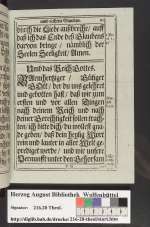 und wahren Glauben.
durch die Liebe außbreche/ auff
daß ich das Ende deß Glaubens
darvon bringe / nämblich der
Seelen Seeligkeit/ Amen.
Umb das Reich Gottes.
BArmhertziger / Gütiger
GOtt/ der du uns gelehret
und gebotten hast/ daß wir zum
ersten und vor allen dingen
nach deinem Reich und nach
deiner Gerechtigkeit sollen trach-
ten/ ich bitte dich du wollest gna-
de geben/ daß dein heylig Wort
rein und lauter in aller Welt ge-
prediget werde / und wir unsere
Vernunfft unter den Gehorsam
Herzog August Bibliothek Wolfenbüttel
Signatur: 216-20 Theol.
http://diglib.hab.de/drucke/216-20-theol/start.htm